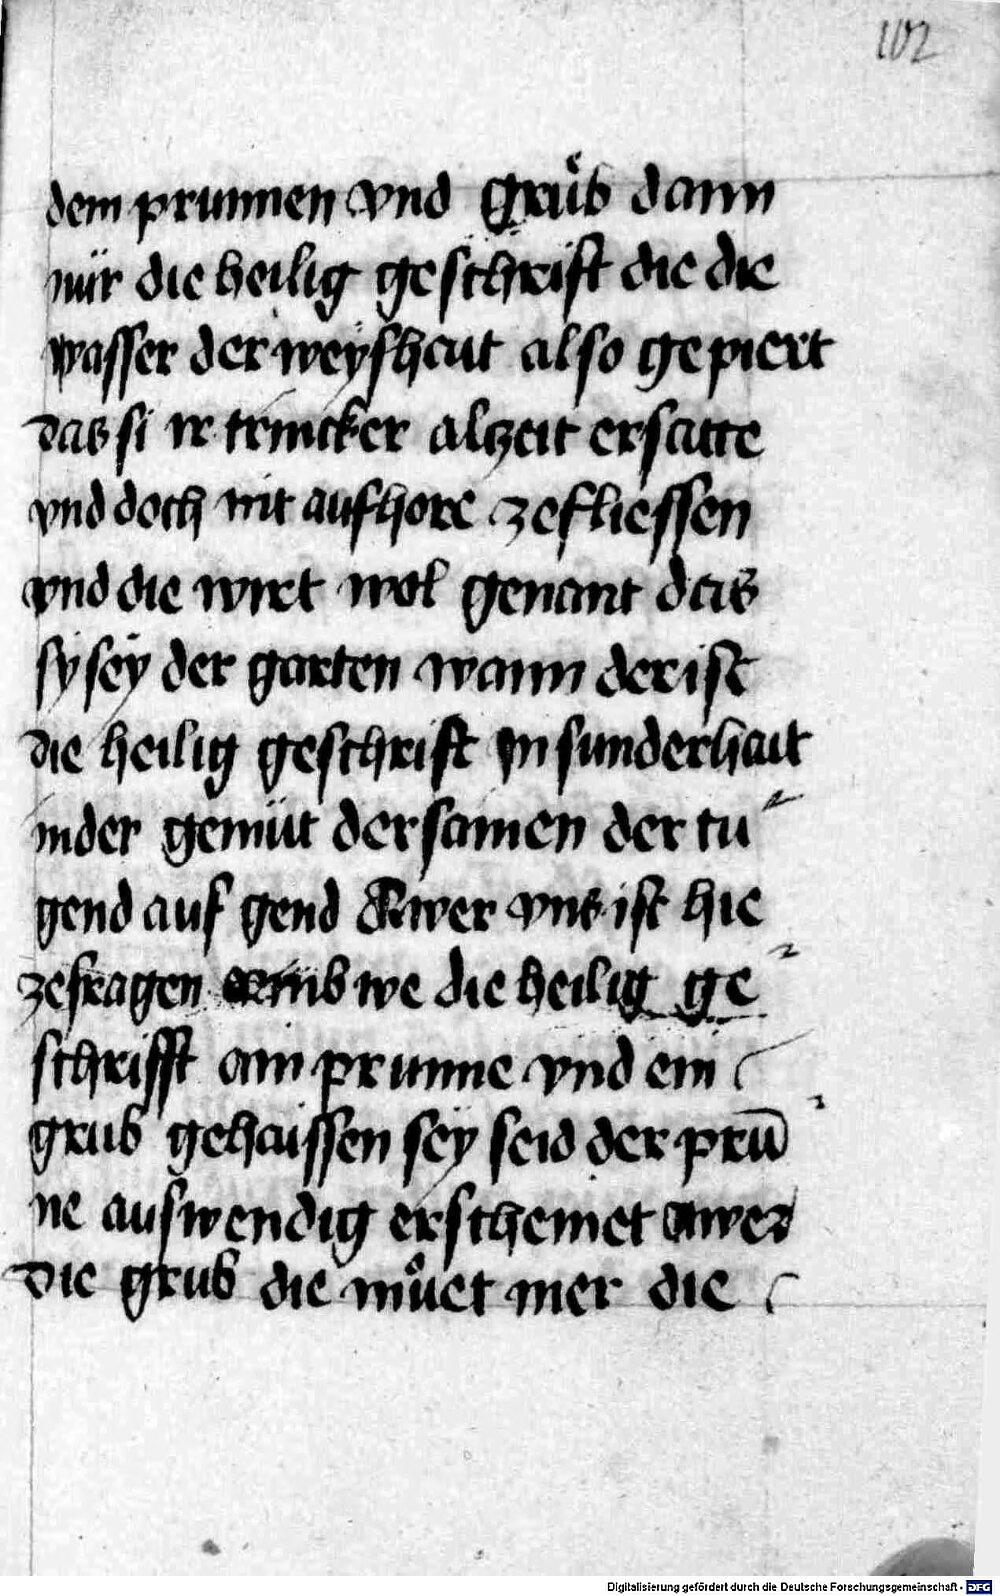 102
dem prunnen vnd grůb dann
nür die heilig geschrift die die
wasser der weyshait also gepiert
das si ir trincker alczeit ersatte
vnd doch nit aufhore ze fliessen
vnd die wirt wol genant das
sy sey der garten wann der ist
die heilig geschrift yn sunderhait
in der gemüt der samen der tu
gend auf gend Awer vns ist hie
ze fragen we die heilig ge
schrifft ain prunne vnd ein
grub gehaissen sey seid der prū
ne auswendig erscheinet awer
die grub die můet mer die
Digitalisierung gefördert durch die Deutsche Forschungsgemeinschaft - DFG